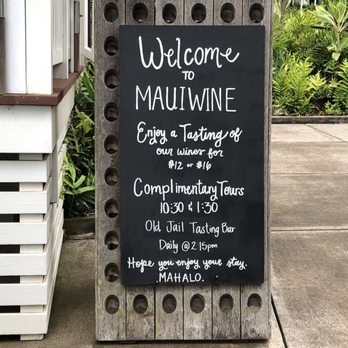 Welcome
TO
MAUIWINE
Enjoy a Tasting of
our wines for
$12 or $16
Complimentary Tours
10:30 & 1:30
Old Jail Tasting Bar
Daily @ 2:15pm
Hope you enjoy your stay.
MAHALO.